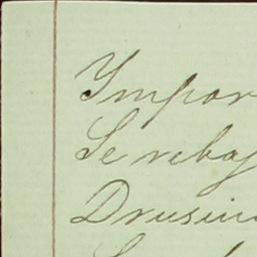 Ympor
Se rebaj
Drusin